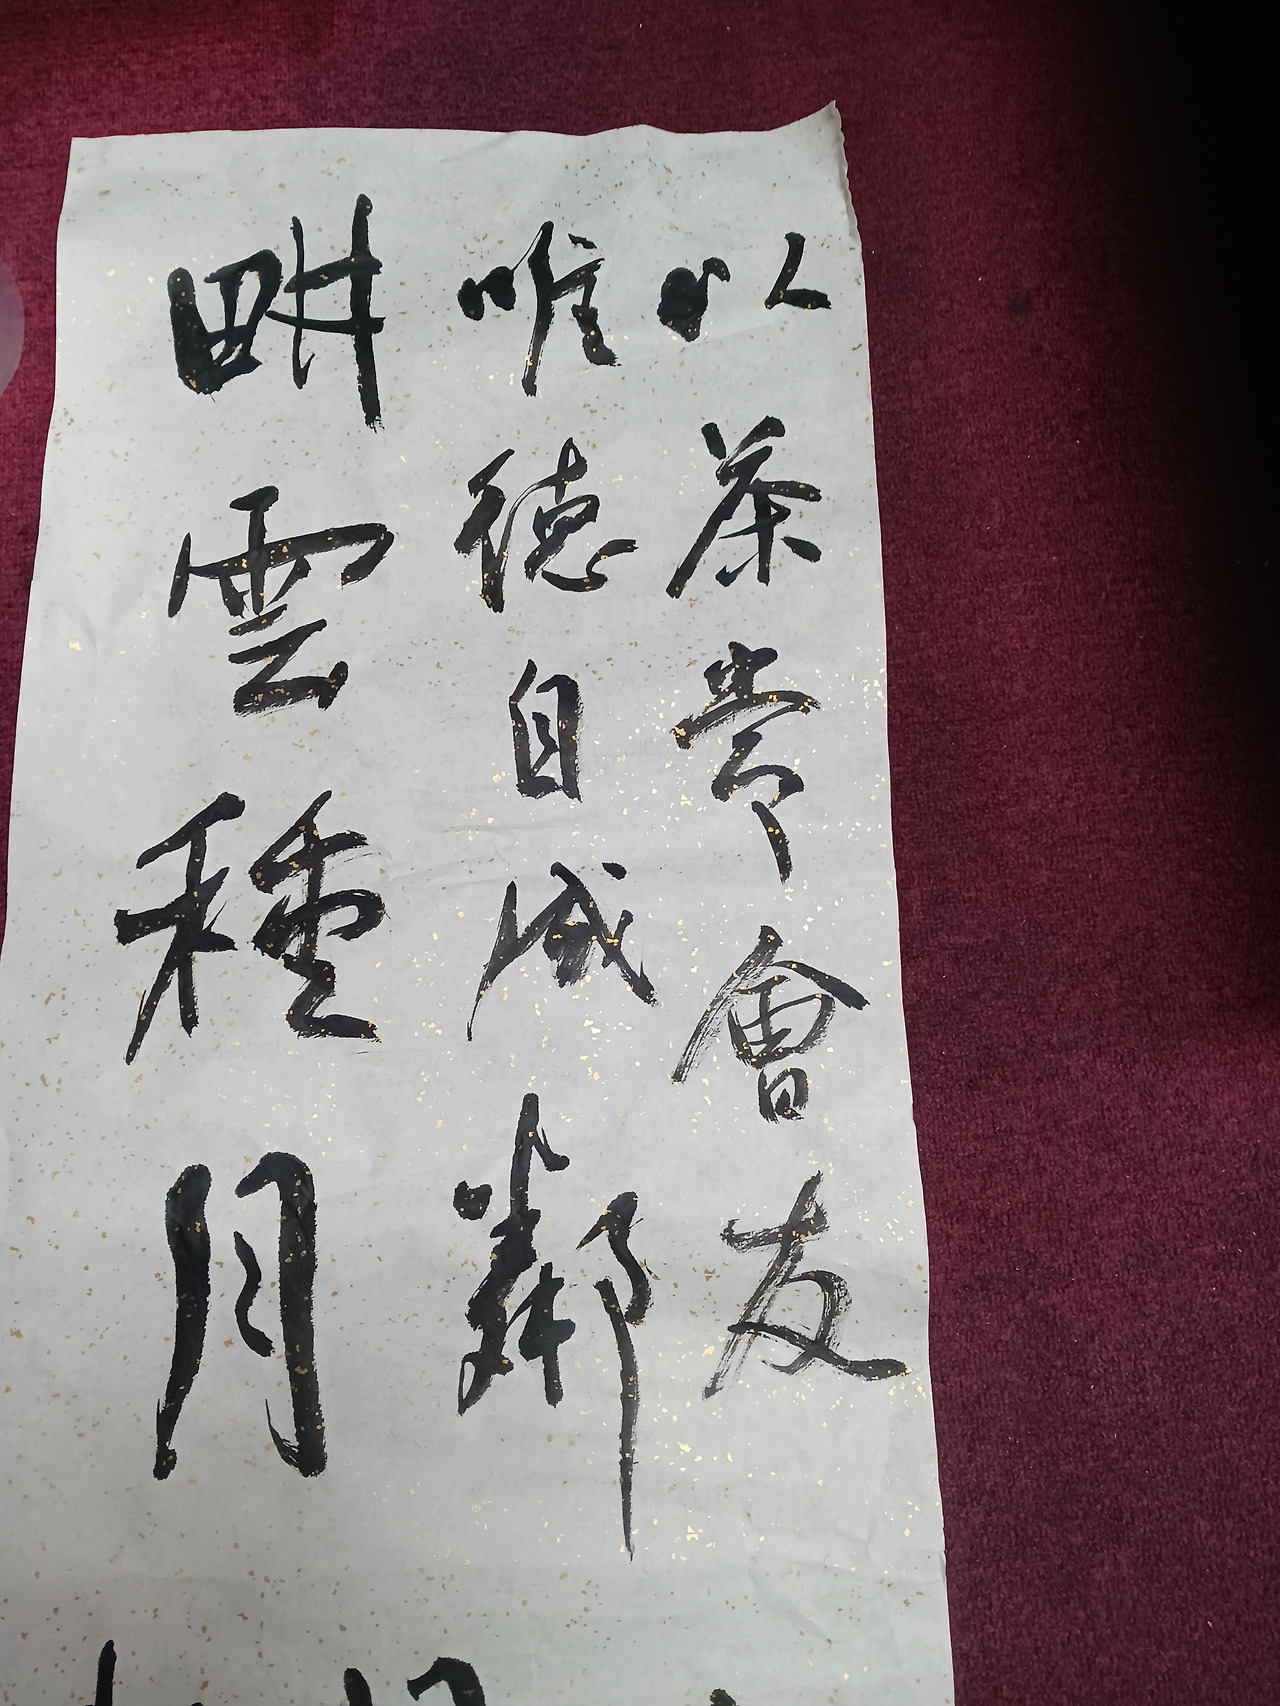 以茶常會友
唯德自成鄰
畊雲種月